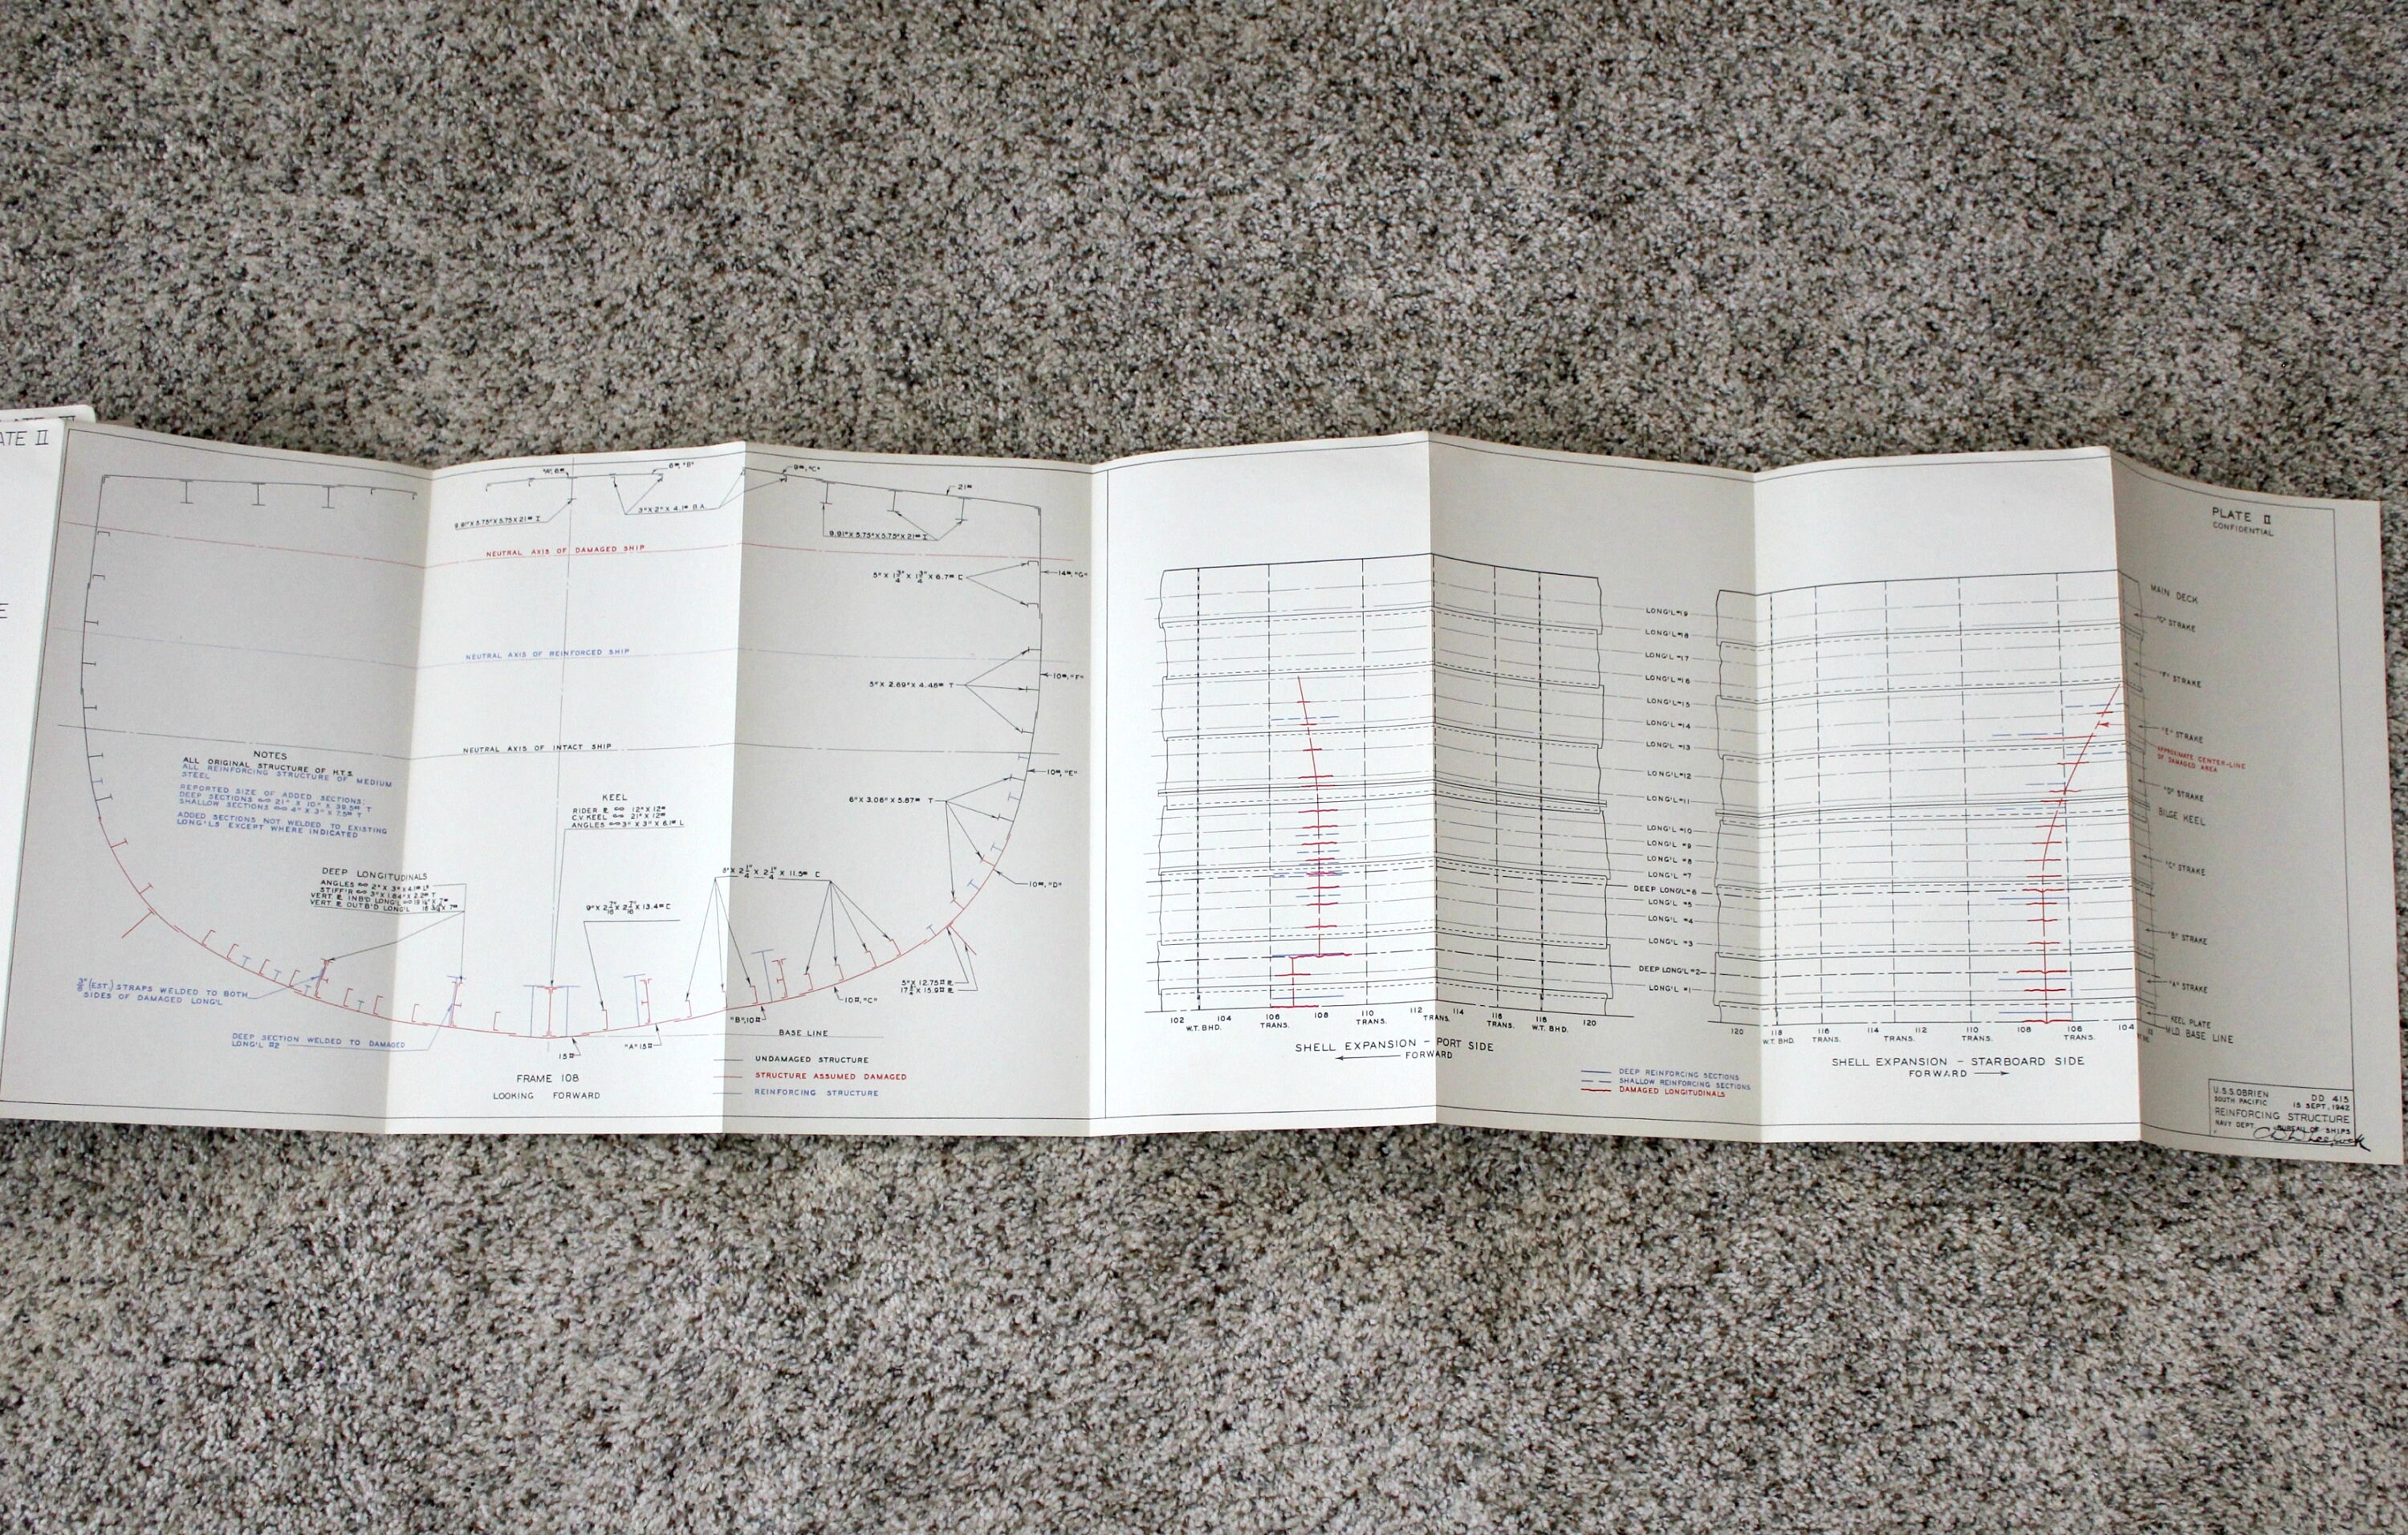 ATE II
E
"A", 6#
6#, "B"
9#, "C"
21#
3" X 2" X 4.1# B.A.
9.91" X 5.75" X 5.75" X 21# I
9.91" X 5.75" X 5.75" X 21# I
NEUTRAL AXIS OF DAMAGED SHIP
14#, "G"
NEUTRAL AXIS OF REINFORCED SHIP
10#, "F"
5" X 2.69" X 4.46# T
NEUTRAL AXIS OF INTACT SHIP
10#, "E"
6" X 3.06" X 5.87# T
10#, "D"
NOTES
ALL ORIGINAL STRUCTURE OF H.T.S.
ALL REINFORCING STRUCTURE OF MEDIUM
STEEL
REPORTED SIZE OF ADDED SECTIONS:
DEEP SECTIONS 21" X 10" X 38.5# T
SHALLOW SECTIONS 4" X 3" X 7.5# T
ADDED SECTIONS NOT WELDED TO EXISTING
LONG'LS EXCEPT WHERE INDICATED
KEEL
12" X 12#
C.V. KEEL 21" X 12#
ANGLES 3" X 3" X 6.1# L
DEEP LONGITUDINALS
10#, "C"
"B", 10#
"A" 15#
15#
(EST.) STRAPS WELDED TO BOTH
SIDES OF DAMAGED LONG'L
DEEP SECTION WELDED TO DAMAGED
LONG'L #2
BASE LINE
UNDAMAGED STRUCTURE
STRUCTURE ASSUMED DAMAGED
REINFORCING STRUCTURE
FRAME 108
LOOKING FORWARD
LONG'L #19
LONG'L #18
LONG'L #17
LONG'L #16
LONG'L #15
LONG'L #14
LONG'L #13
LONG'L #12
LONG'L #11
LONG'L #10
LONG'L #9
LONG'L #8
LONG'L #7
DEEP LONG'L #6
LONG'L #5
LONG'L #4
LONG'L #3
DEEP LONG'L #2
LONG'L #1
102 104 106 108 110 112 114 116 118 120
W.T. BHD. TRANS. TRANS. TRANS. TRANS. W.T. BHD.
SHELL EXPANSION - PORT SIDE
FORWARD
DEEP REINFORCING SECTIONS
SHALLOW REINFORCING SECTIONS
DAMAGED LONGITUDINALS
120 118 116 114 112 110 108 106 104
W.T. BHD. TRANS. TRANS. TRANS. TRANS.
SHELL EXPANSION - STARBOARD SIDE
FORWARD
PLATE II
CONFIDENTIAL
MAIN DECK
"G" STRAKE
"F" STRAKE
"E" STRAKE
APPROXIMATE CENTER-LINE
OF DAMAGED AREA
"D" STRAKE
BILGE KEEL
"C" STRAKE
"B" STRAKE
"A" STRAKE
KEEL PLATE
MLD. BASE LINE
U.S.S. OBRIEN DD 415
SOUTH PACIFIC 15 SEPT., 1942
REINFORCING STRUCTURE
NAVY DEPT. BUREAU OF SHIPS